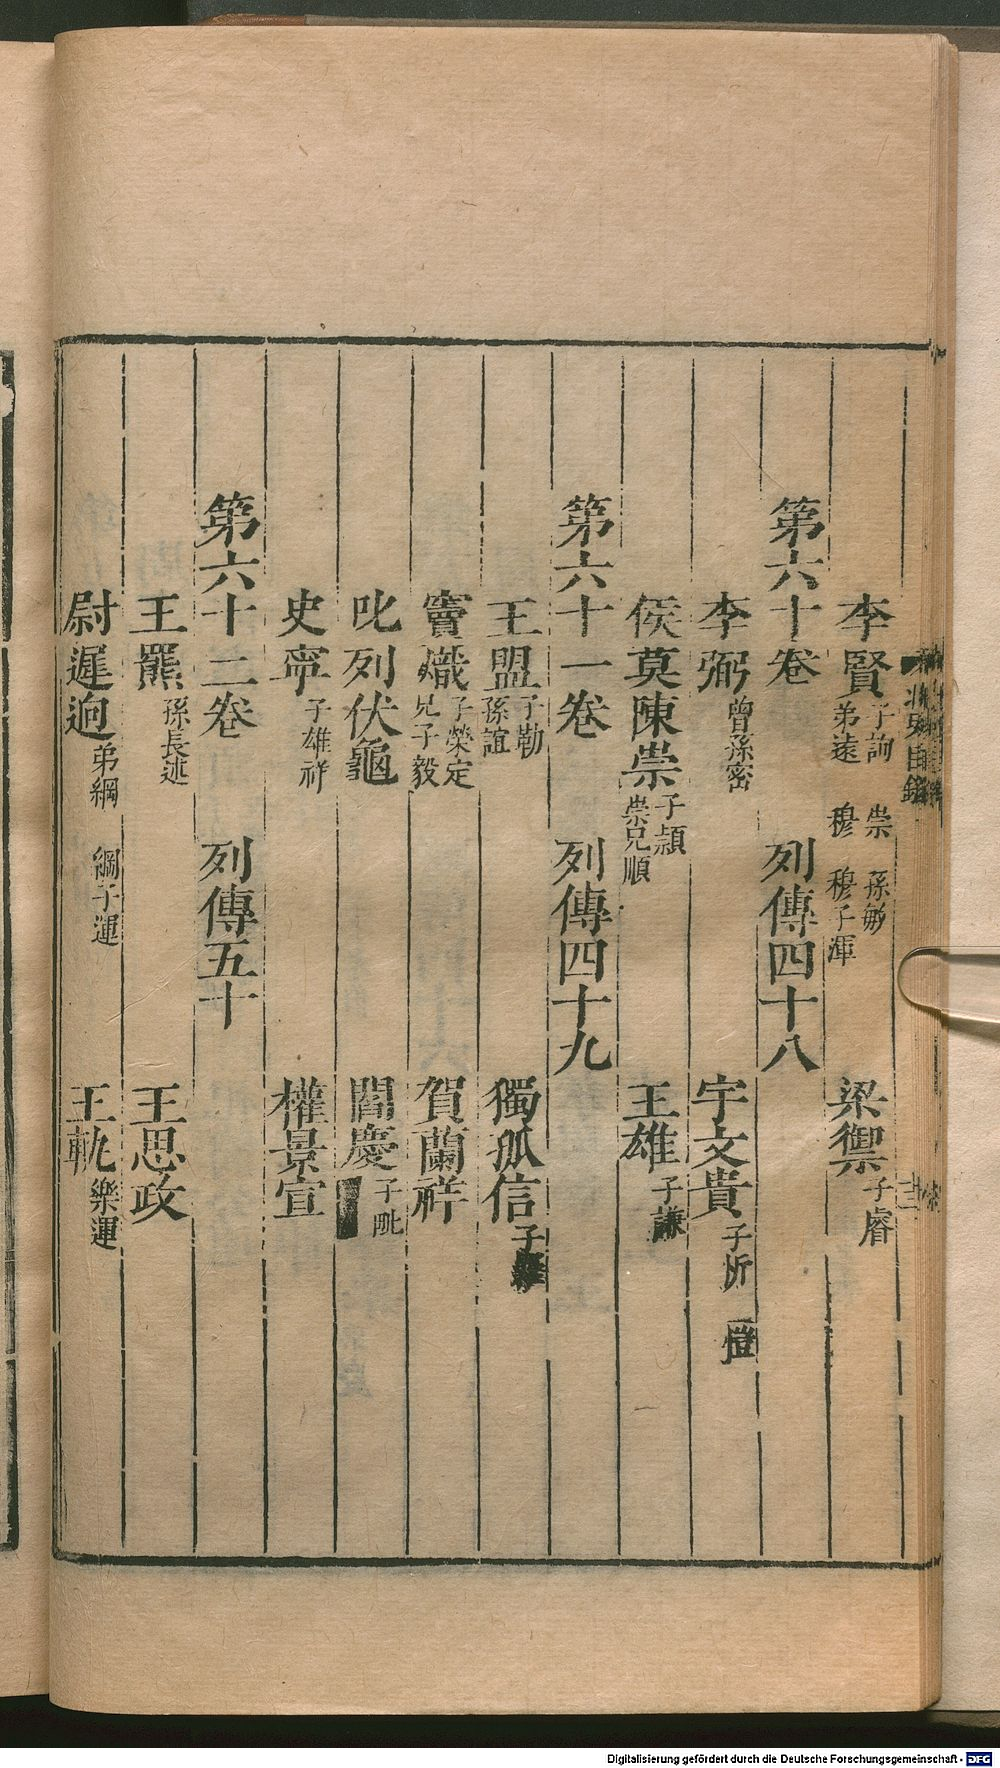 李賢 子詢 崇 孫敏 弟遠 穆 穆子渾 梁禦 子睿
第六十卷 列傳四十八
李弼 曾孫密 宇文貴 子忻 愷
侯莫陳崇 子頴 崇兄順 王雄 子謙
第六十一卷 列傳四十九
王盟 子勱 孫誼 獨孤信 子
竇熾 子榮定 兄子毅 賀蘭祥
叱列伏龜 閻慶 子毗
史寧 子雄 祥 權景宣
第六十二卷 列傳五十
王羆 孫長述 王思政
尉遲逈 弟綱 綱子運 王軌 樂運
北史目錄
Digitalisierung gefördert durch die Deutsche Forschungsgemeinschaft - DFG